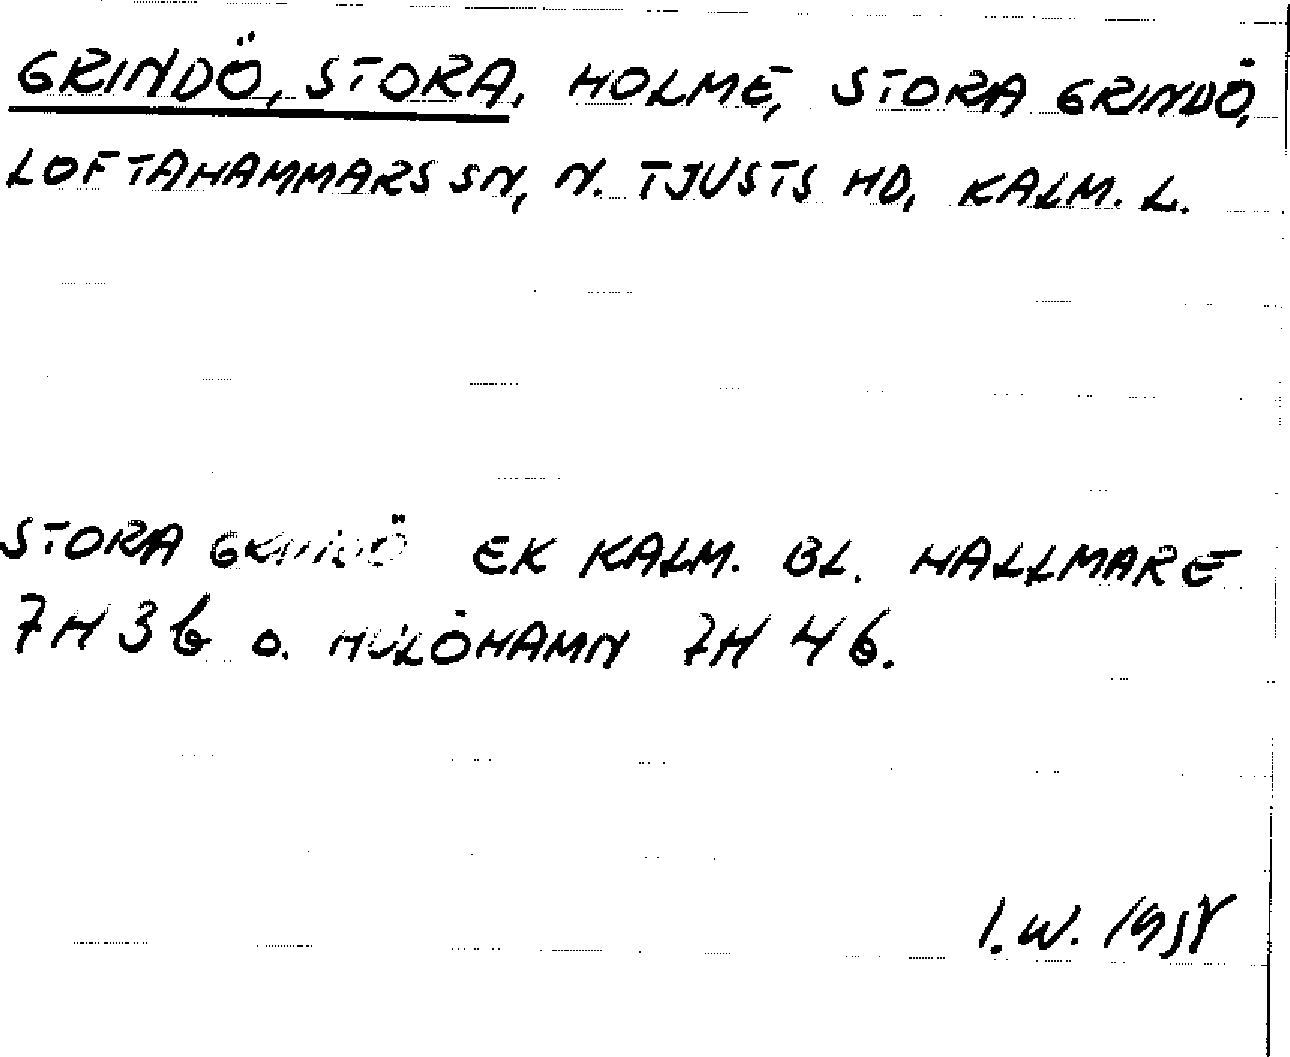 GRINDÖ, STORA, HOLME, STORA GRINDÖ,
LOFTAHAMMARS SN, N. TJUSTS HD, KALM. L.
STORA GRINDÖ EK KALM. BL. HALLMARE
7H 3b o. HULÖHAMN 7H 4b.
I.W.